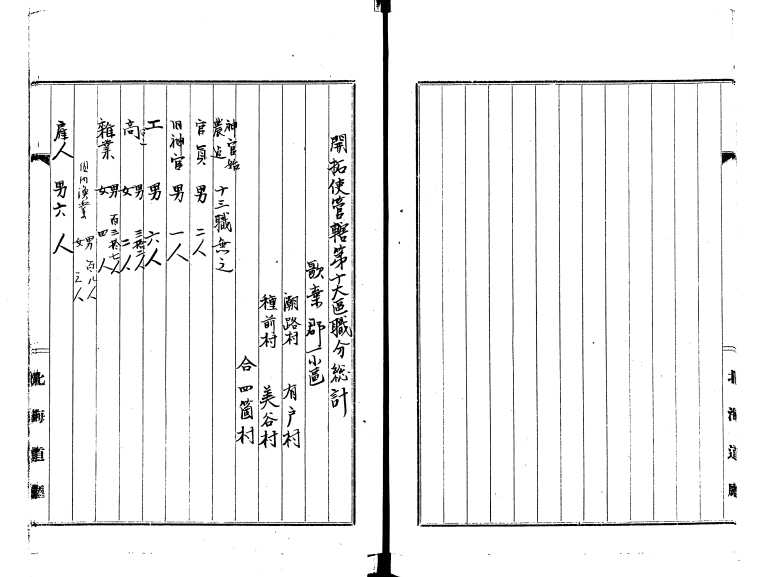 開拓使管轄第十大區職分総計
歌棄郡一小區
潮路村　有戸村
種前村　美谷村
合四箇村
神官始
農迠　十三職無之
官員　男　二人
旧神官　男　一人
工　男　六人
商　男　三拾二人
女　二人
雜業　男　百三拾七人
女　四人
内漁業　男　百八人
女　三人
雇人　男六人
北海道廳
北海道廳